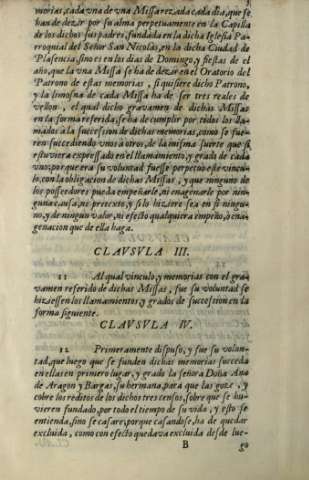 morias, cada vna de vna Missa rezada cada dia, que se
han de dezir por su alma perpetuamente en la Capilla
de los dichos sus padres, fundada en la dicha Iglesia Pa-
rroquial del Señor San Nicolàs, en la dicha Ciudad de
Plasencia, sino es en los dias de Domingo, y fiestas de el
año, que la vna Missa se ha de dezir en el Oratorio del
Patron de estas memorias, si quisiere dicho Patrono,
y la limosna de cada Missa ha de ser tres reales de
vellon, el qual dicho gravamen de dichas Missas
en la forma referida, se ha de cumplir por todos los lla-
mados a la succession de dichas memorias, como se fue-
ren succediendo vnos a otros, de la misma suerte que si
estuviera expressado en el llamamiento, y grado de cada
vno; porque era su voluntad fuesse perpetuo este vincu-
lo, con la obligacion de dichas Missas, y que ninguno de
los posseedores pueda empeñarle, ni enagenarle por nin-
guna causa, ni pretexto, y si lo hiziere sea en sì ningu-
no, y de ningun valor, ni efecto qualquiera empeño, ò ena-
genacion que de ella haga.
CLAVSVLA III.
11 Al qual vinculo, y memorias con el gra-
vamen referido de dichas Missas, fue su voluntad se
hiziessen los llamamientos, y grados de succession en la
forma siguiente.
CLAVSVLA IV.
12 Primeramente dispuso, y fue su volun-
tad, que luego que se funden dichas memorias suceda
en ellas en primero lugar, y grado la señora Doña Ana
de Aragon y Bargas, su hermana, para que las goze, y
cobre los reditos de los dichos tres censos, sobre que se hu-
vieren fundado, por todo el tiempo de su vida, y esto se
entienda, sino se casare, porque casandose, ha de quedar
excluida, como con efecto quedava excluida desde lue-
B go